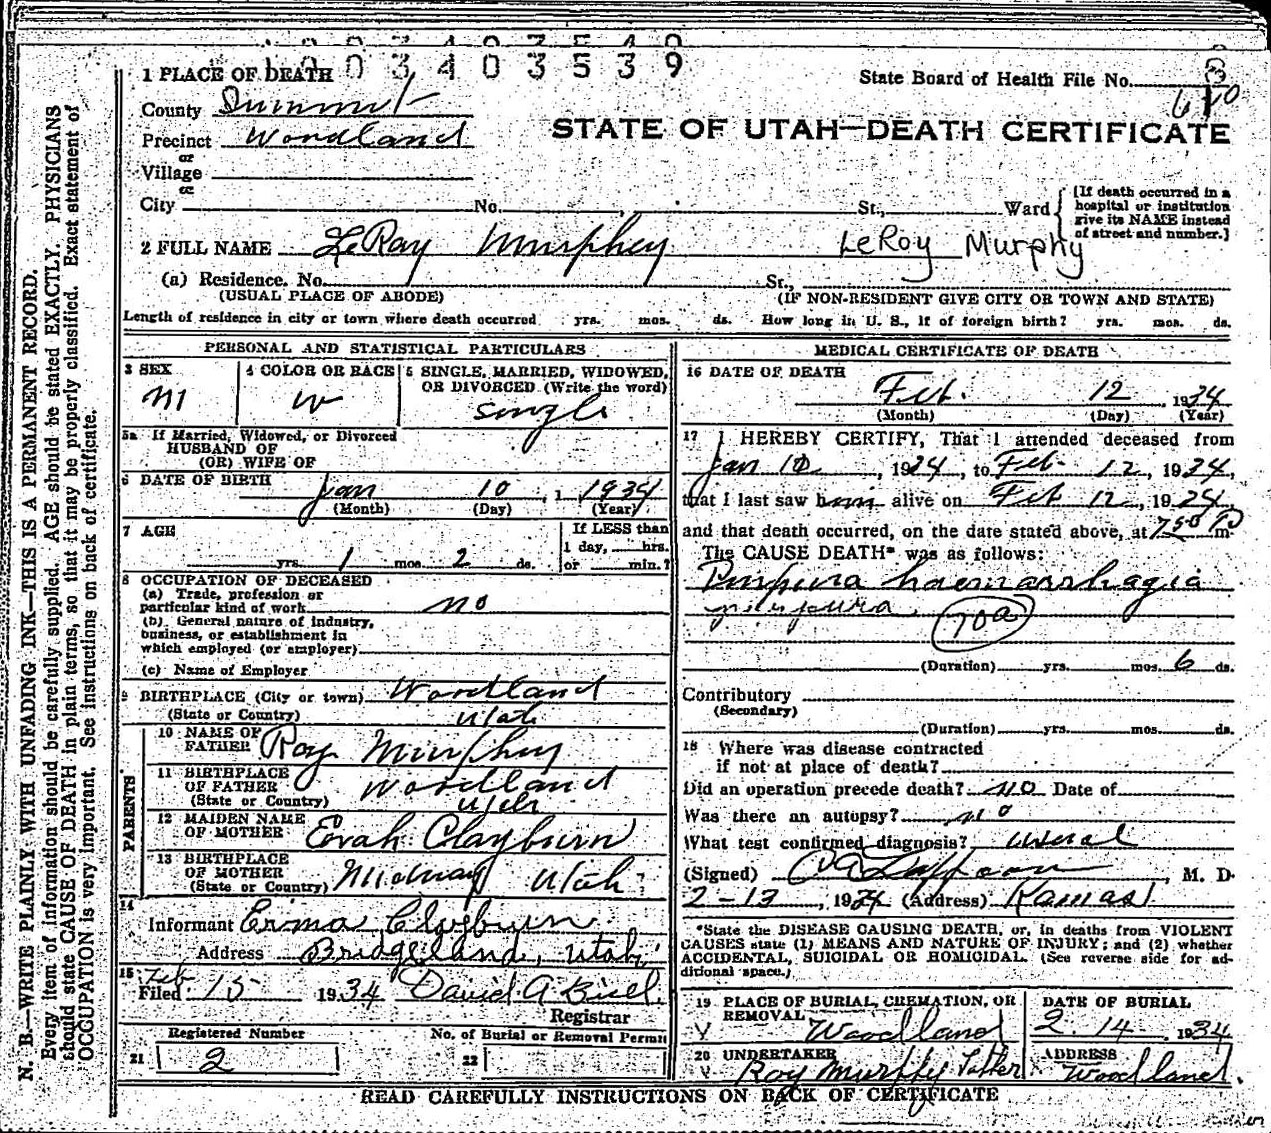 1003403539
1 PLACE OF DEATH
State Board of Health File No. 3
610
County Summit
STATE OF UTAH—DEATH CERTIFICATE
Precinct Woodland
or
Village
or
City No. , St., Ward
[If death occurred in a hospital or institution give its NAME instead of street and number.]
2 FULL NAME LeRay Murphey LeRoy Murphy
(a) Residence. No. St.,
(USUAL PLACE OF ABODE) (IF NON-RESIDENT GIVE CITY OR TOWN AND STATE)
Length of residence in city or town where death occurred yrs. mos. ds. How long in U. S., if of foreign birth? yrs. mos. ds.
PERSONAL AND STATISTICAL PARTICULARS
3 SEX 4 COLOR OR RACE 5 SINGLE, MARRIED, WIDOWED,
OR DIVORCED (Write the word)
M W single
5a If Married, Widowed, or Divorced
HUSBAND OF
(OR) WIFE OF
6 DATE OF BIRTH Jan 10, 1 1934
(Month) (Day) (Year)
7 AGE If LESS than
1 day, hrs.
yrs. 1 mos. 2 ds. or min.?
8 OCCUPATION OF DECEASED
(a) Trade, profession or
particular kind of work no
(b) General nature of industry,
business, or establishment in
which employed (or employer)
(c) Name of Employer
9 BIRTHPLACE (City or town) Woodland
(State or Country) Utah
PARENTS
10 NAME OF
FATHER Roy Murphey
11 BIRTHPLACE
OF FATHER Woodland
(State or Country) Utah
12 MAIDEN NAME
OF MOTHER Evah Clayburn
13 BIRTHPLACE
OF MOTHER
(State or Country) Midway Utah
14
Informant Erma Clayburn
Address Bridgeland, Utah
15 Feb
Filed 15 1934 David A Bisel
Registrar
Registered Number No. of Burial or Removal Permit
21 2 22
MEDICAL CERTIFICATE OF DEATH
16 DATE OF DEATH
Feb. 12, 1934
(Month) (Day) (Year)
17 I HEREBY CERTIFY, That I attended deceased from
Jan 10, 1934, to Feb 12, 1934,
that I last saw him alive on Feb 12, 1934
and that death occurred, on the date stated above, at 750 P m.
The CAUSE DEATH* was as follows:
Purpura haemarrhagia
70a
(Duration) yrs. mos. 6 ds.
Contributory
(Secondary)
(Duration) yrs. mos. ds.
18 Where was disease contracted
if not at place of death?
Did an operation precede death? no Date of
Was there an autopsy? no
What test confirmed diagnosis? usual
(Signed) M. D.
2-13, 1934 (Address) Kamas
*State the DISEASE CAUSING DEATH, or, in deaths from VIOLENT
CAUSES state (1) MEANS AND NATURE OF INJURY; and (2) whether
ACCIDENTAL, SUICIDAL OR HOMICIDAL. (See reverse side for ad-
ditional space.)
19 PLACE OF BURIAL, CREMATION, OR
REMOVAL DATE OF BURIAL
Woodland 2-14- 1934
20 UNDERTAKER ADDRESS
Roy Murphy Father Woodland.
READ CAREFULLY INSTRUCTIONS ON BACK OF CERTIFICATE
N. B.—WRITE PLAINLY WITH UNFADING INK—THIS IS A PERMANENT RECORD.
Every item of information should be carefully supplied. AGE should be stated EXACTLY. PHYSICIANS
should state CAUSE OF DEATH in plain terms, so that it may be properly classified. Exact statement of
OCCUPATION is very important. See instructions on back of certificate.